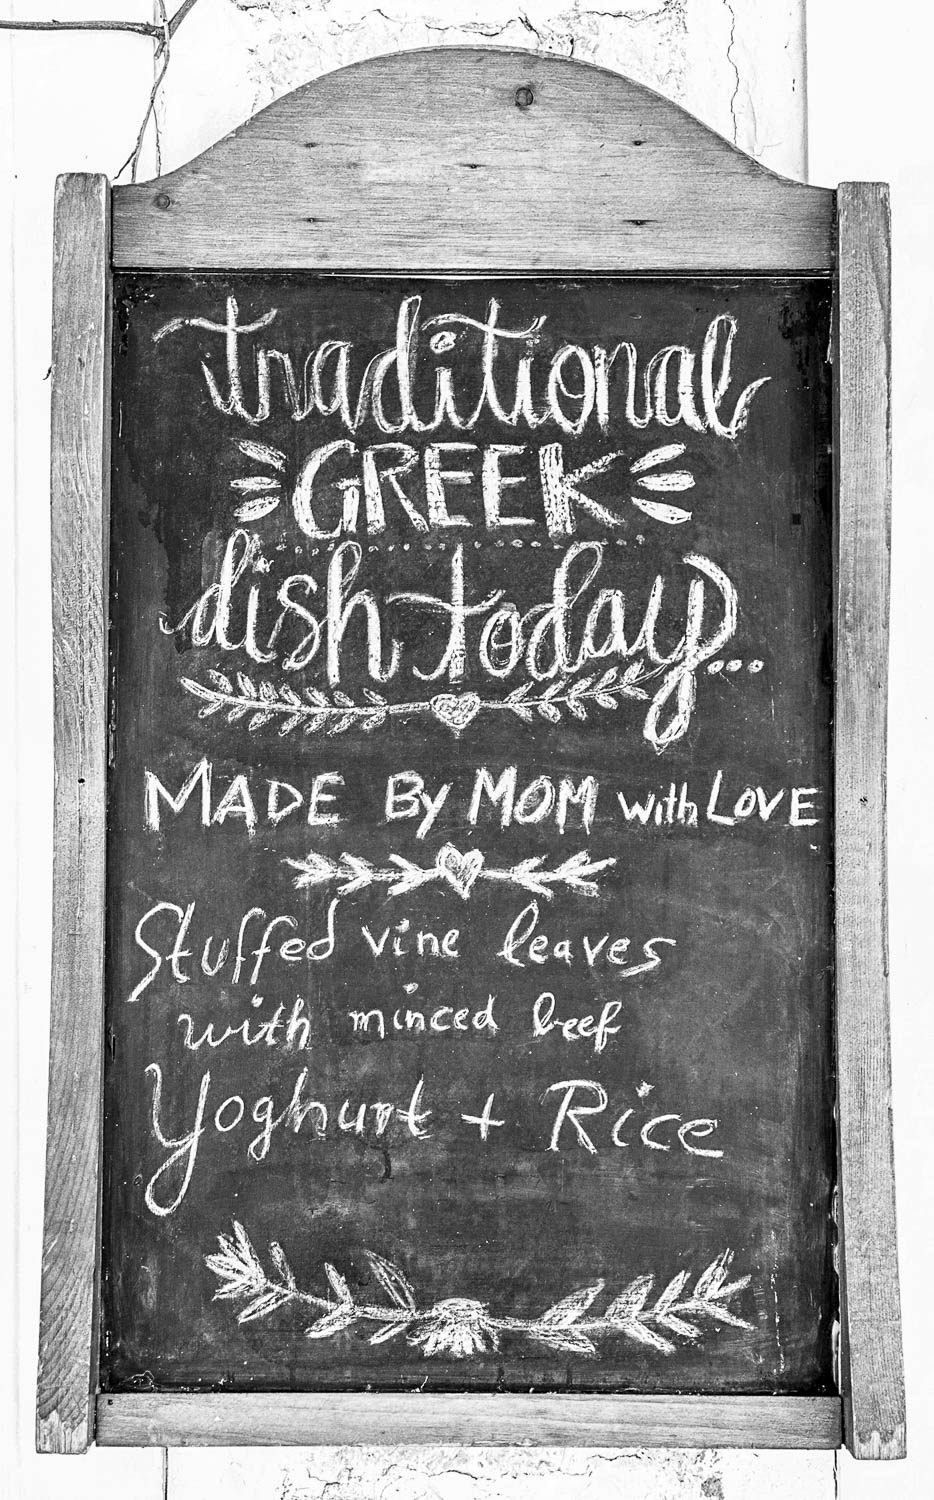 traditional
GREEK
dish today...
MADE BY MOM with LOVE
Stuffed vine leaves
with minced beef
Yoghurt + Rice